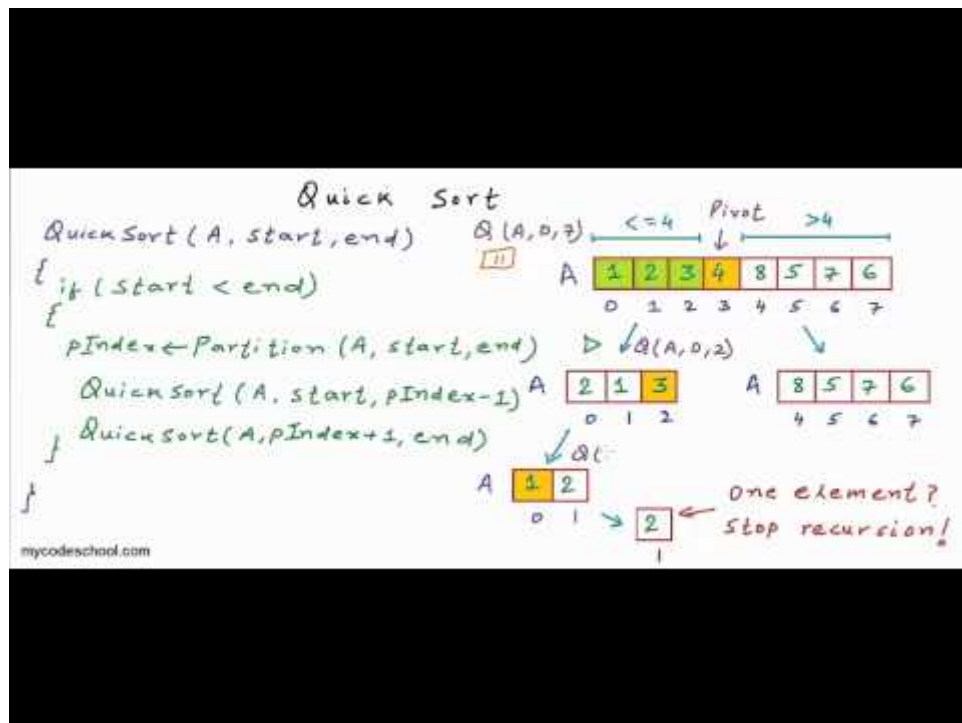 Quick Sort
QuickSort(A, start, end)
{
if (start < end)
{
pIndex ← Partition (A, start, end)
QuickSort(A, start, pIndex-1)
QuickSort(A, pIndex+1, end)
}
}
mycodeschool.com
Q(A,0,7)
<=4 Pivot >4
A 1 2 3 4 8 5 7 6
0 1 2 3 4 5 6 7
Q(A,0,2)
A 2 1 3
0 1 2
A 8 5 7 6
4 5 6 7
Q(
A 1 2
0 1
2
1
One element?
Stop recursion!